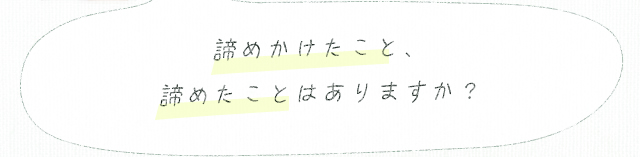 諦めかけたこと、
諦めたことはありますか？